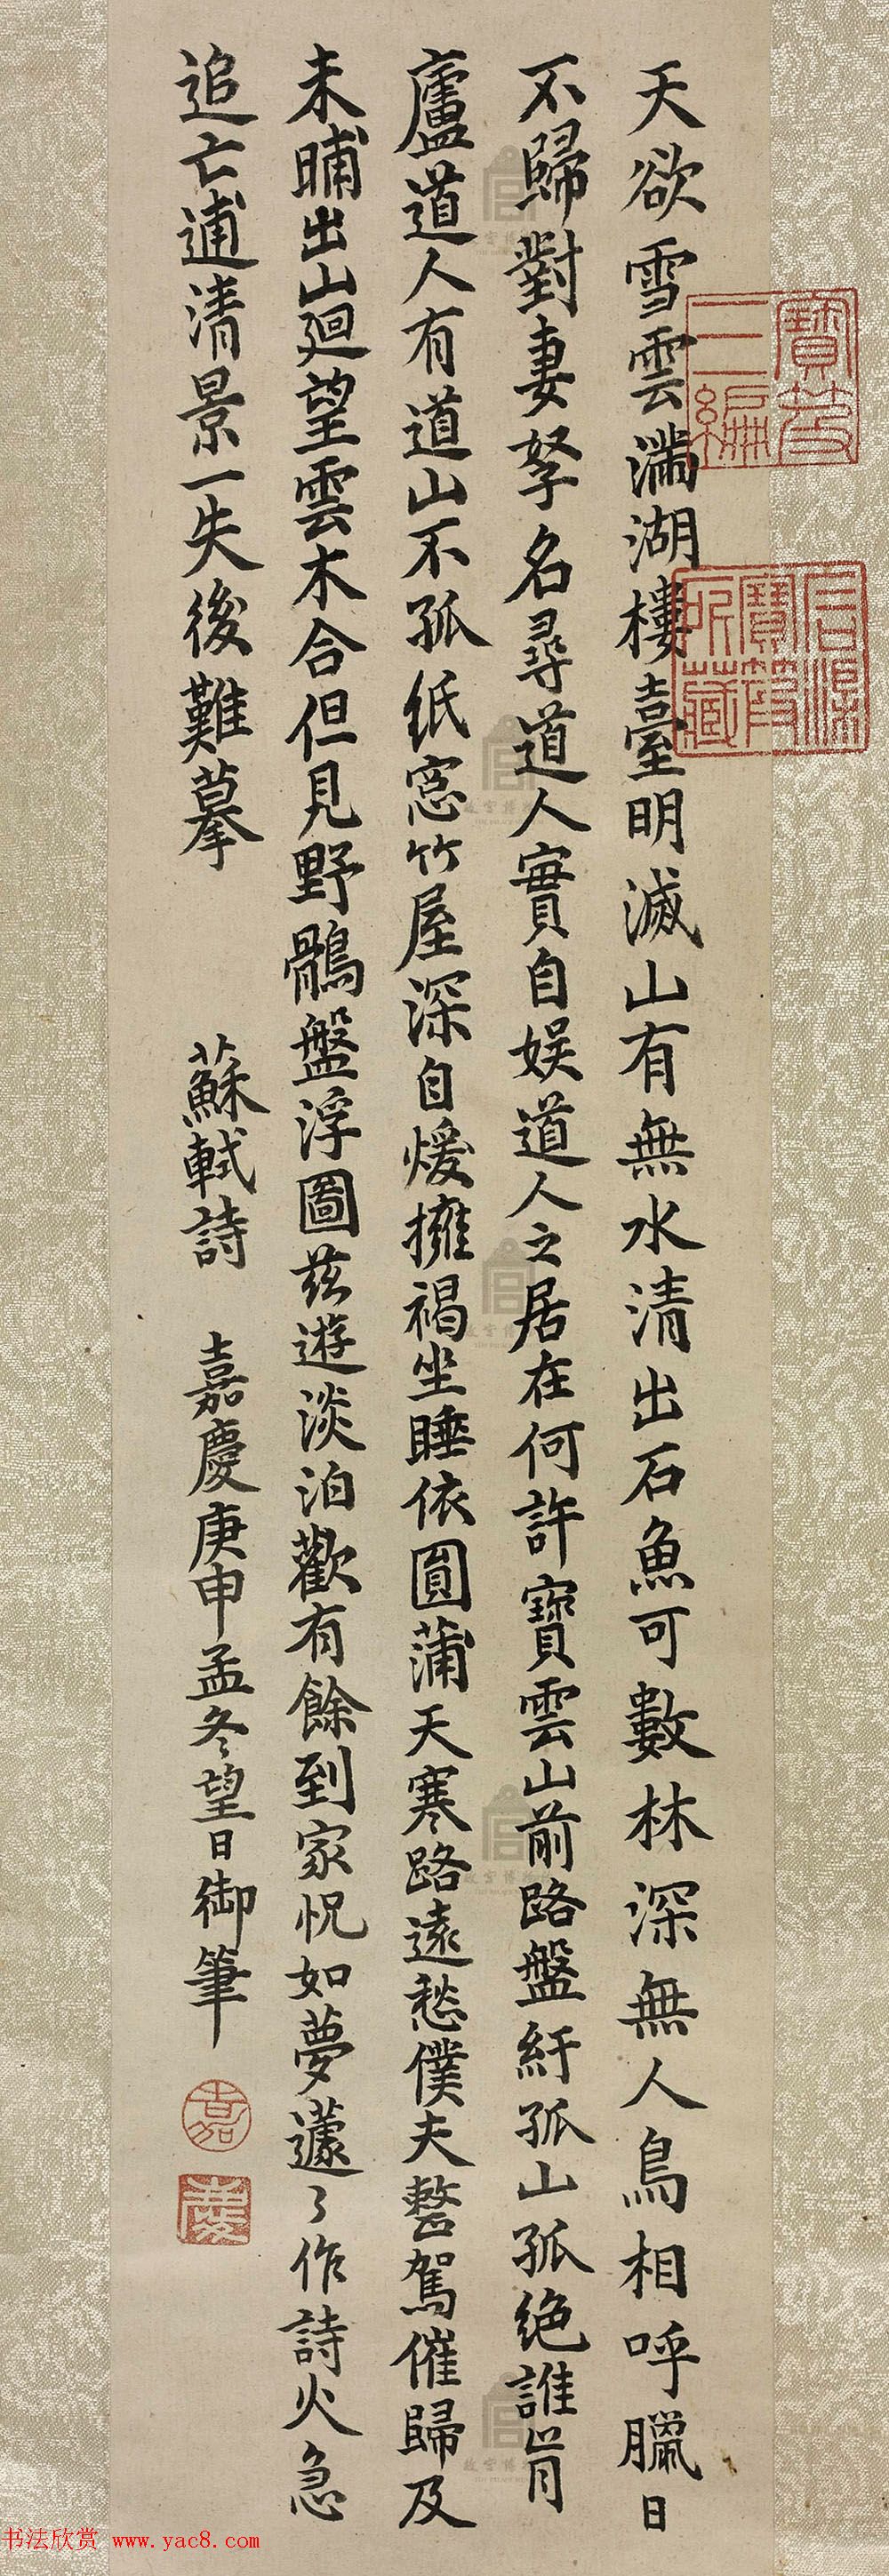 天欲雪雲滿湖樓臺明滅山有無水清出石魚可數林深無人鳥相呼臘日
不歸對妻孥名尋道人實自娛道人之居在何許寶雲山前路盤紆孤山孤絶誰肯
廬道人有道山不孤紙窓竹屋深自煖擁褐坐睡依圓蒲天寒路遠愁僕夫整駕催歸及
未晡出山迴望雲木合但見野鶻盤浮圖茲遊淡泊歡有餘到家怳如夢蘧々作詩火急
追亡逋清景一失後難摹 蘇軾詩 嘉慶庚申孟冬望日御筆
嘉
慶
寶笈
三編
故宮博物院
书法欣赏 www.yac8.com